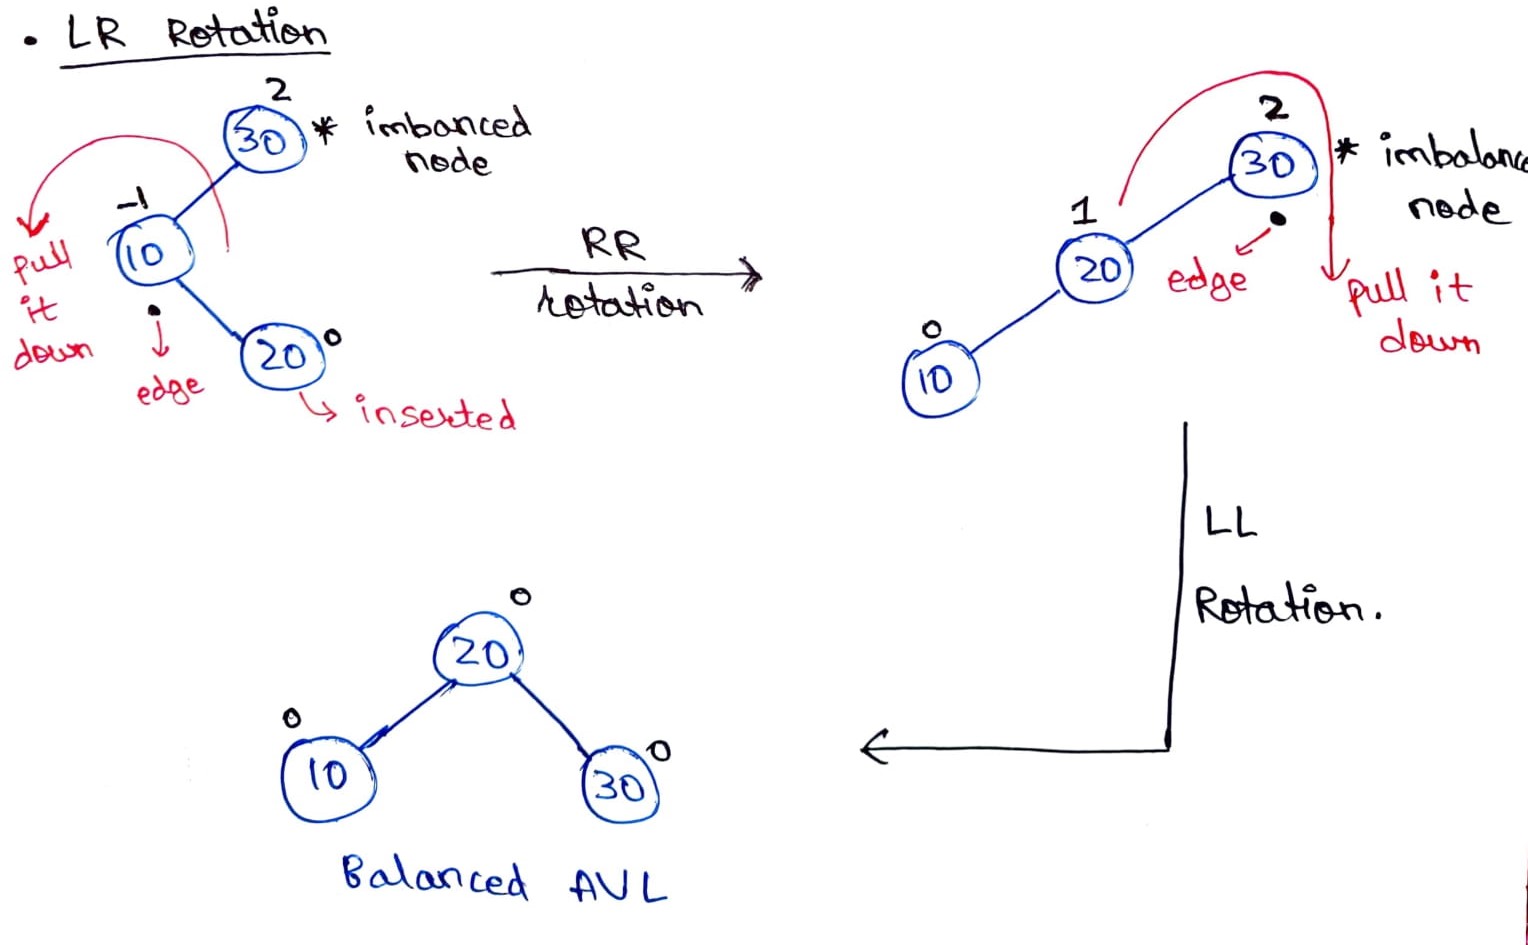 • LR Rotation
2
30 * imbanced
node
-1
10
pull
it
down
edge
20 0
inserted
RR
rotation
2
30 * imbalance
node
1
20
edge
pull it
down
0
10
LL
Rotation.
0
20
0
10
0
30
Balanced AVL